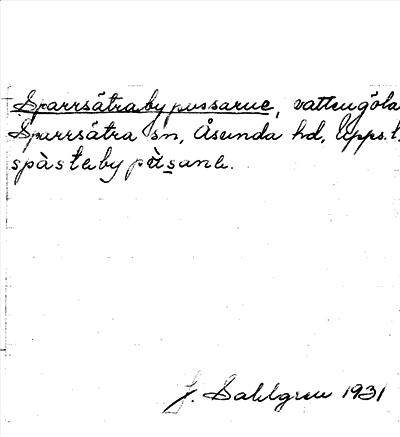 Sparrsätrabypussarne, vattengöla
Sparrsätra sn, Åsunda hd, Upps. l.
spàstebỳ pùsana.
J. Sahlgren 1931